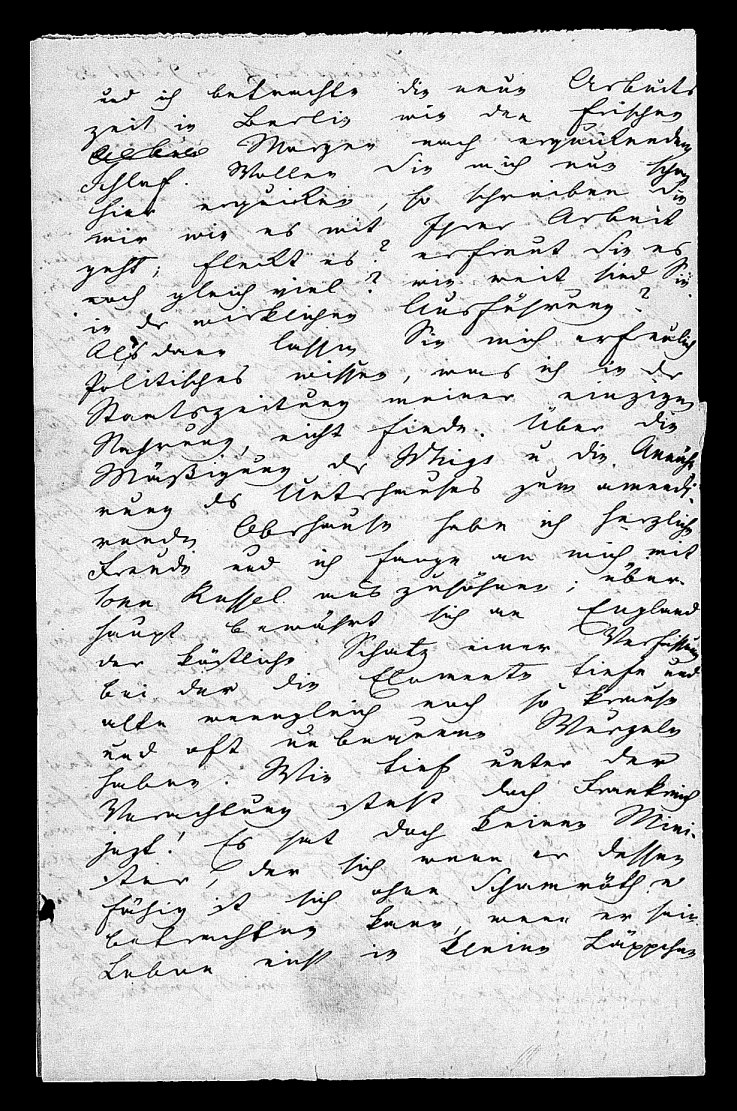 und ich betrachte die neue Arbeits
zeit in Berlin wie den frischen
Morgen nach erquickendem
Schlaf. Wollen Sie mich nun schon
hier erquicken, so schreiben Sie
mir wie es mit Ihrer Arbeit
geht; fleckt es? erfreut Sie es
noch gleich viel? wie weit sind Sie
in der wirklichen Ausführung?
Alsdann lassen Sie mich erfreulich
Politisches wissen, was ich in der
Staatszeitung meiner einzigen
Nahrung, nicht finde. Über die
Mäßigung der Whigs u die Annähe
rung des Unterhauses zum amendi-
renden Oberhause habe ich herzliche
Freude und ich fange an mich mit
John Russel auszusöhnen; über-
haupt bewährt sich an England
der köstliche Schatz einer Verfassung
bei der die Elemente tiefe und
alte wenngleich noch so krause
und oft unbequeme Wurzeln
haben. Wie tief unter der
Verachtung steht doch Frankreich
jezt! Es hat doch keinen Mini-
ster, der sich wenn er dessen
fähig ist sich ohne Schamröthe
betrachten kann, wenn er sein
Leben nicht in kleine Läppchen